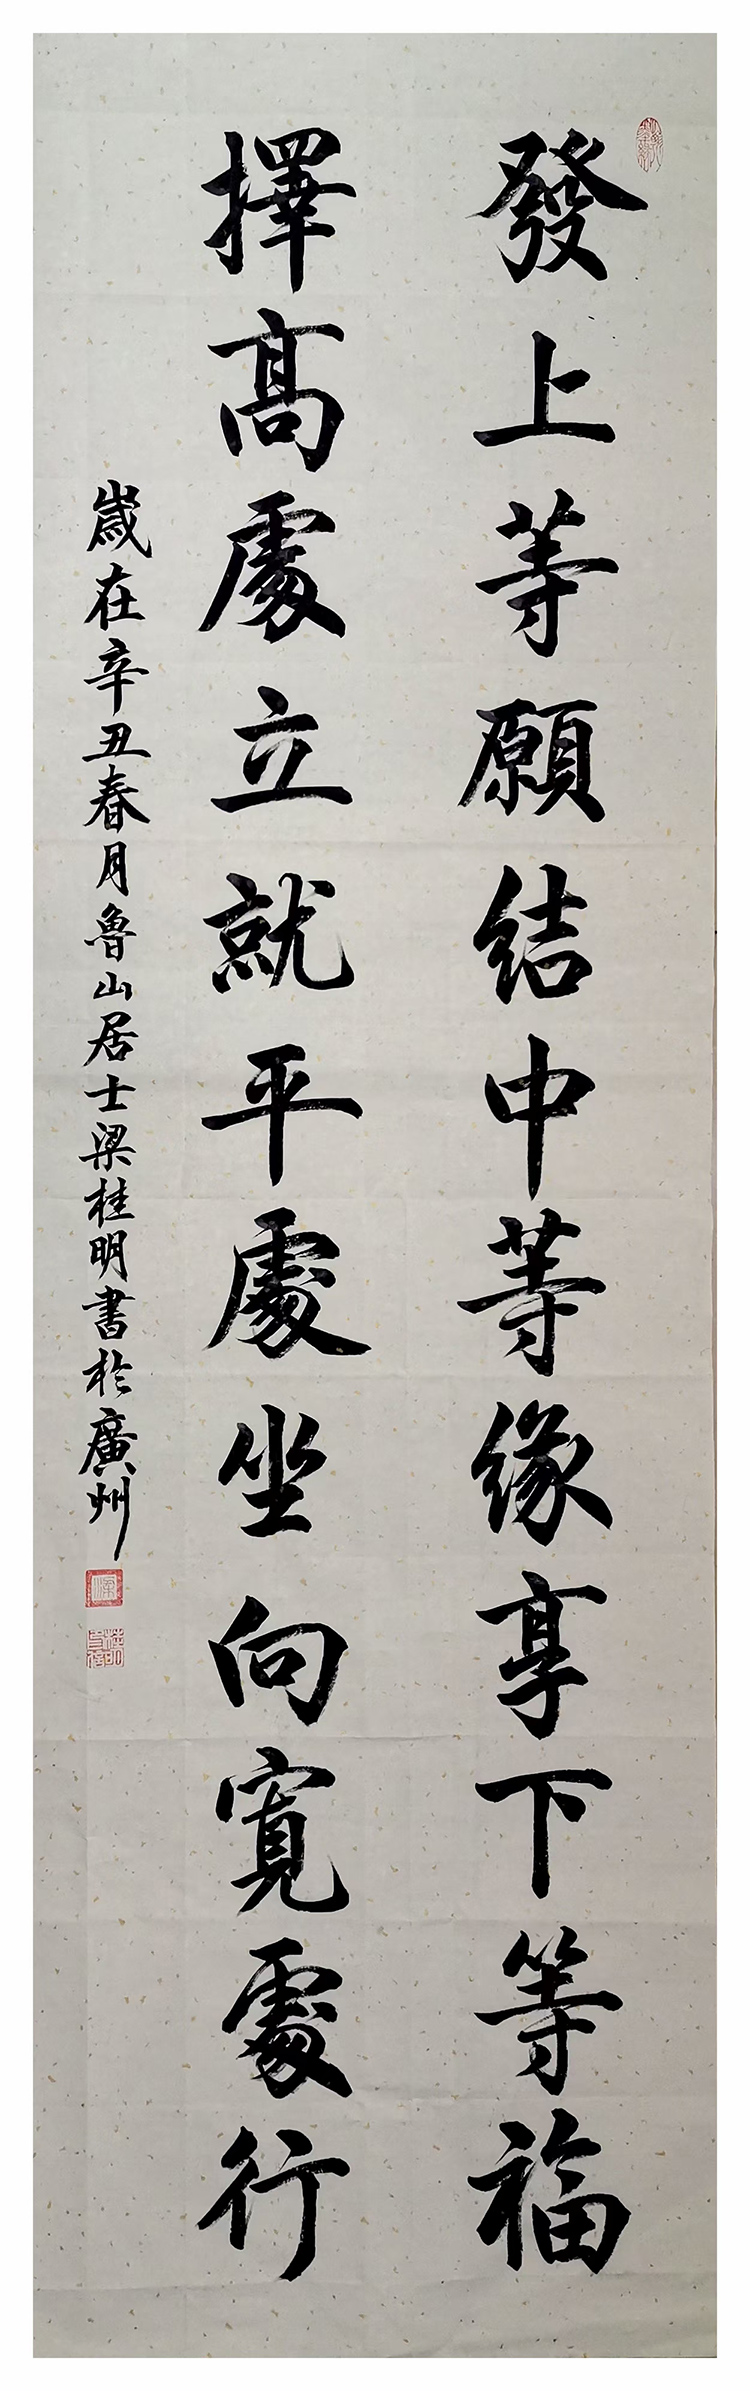 發上等願結中等緣享下等福
擇高處立就平處坐向寬處行
歲在辛丑春月魯山居士梁桂明書於廣州